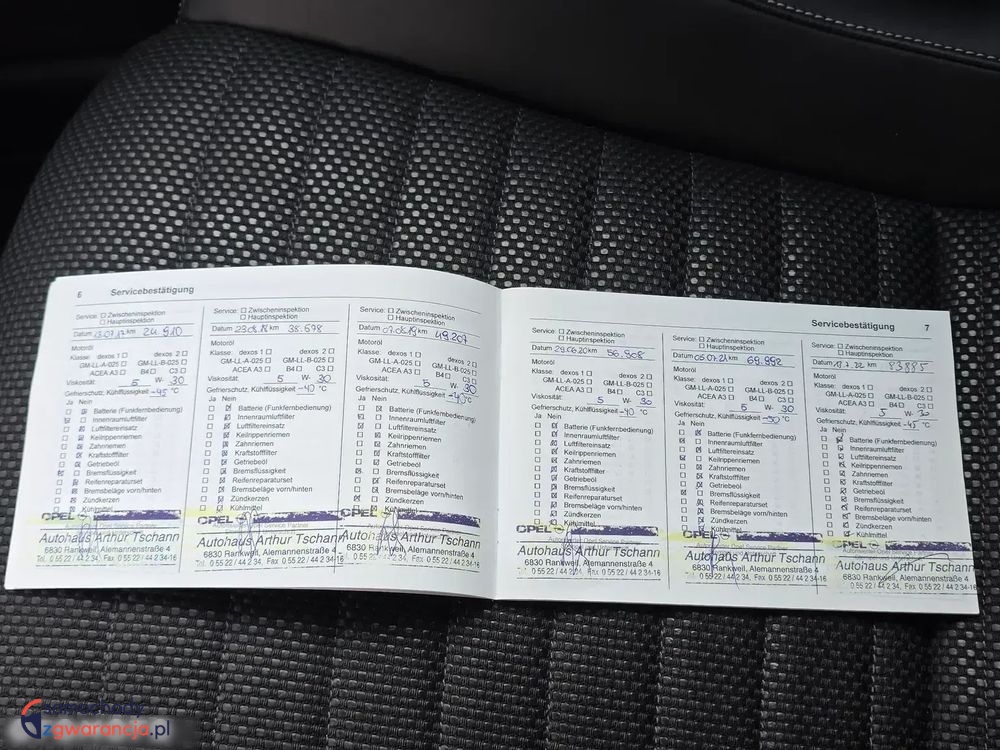 6 Servicebestätigung
Service: ☐ Zwischeninspektion
☐ Hauptinspektion
Datum 13.07.17 km 24.910
Motoröl
Klasse: dexos 1 ☐ dexos 2 ☐
GM-LL-A-025 ☐ GM-LL-B-025 ☐
ACEA A3 ☐ B4 ☐ C3 ☐
Viskosität: 5 W- 30
Gefrierschutz, Kühlflüssigkeit -45 °C
Ja Nein
Batterie (Funkfernbedienung)
Innenraumluftfilter
Luftfiltereinsatz
Keilrippenriemen
Zahnriemen
Kraftstofffilter
Getriebeöl
Bremsflüssigkeit
Reifenreparaturset
Bremsbeläge vorn/hinten
Zündkerzen
Kühlmittel
OPEL
Autohaus Arthur Tschann
6830 Rankweil, Alemannenstraße 4
Tel. 0 55 22 / 44 2 34, Fax 0 55 22 / 44 2 34-16
Service: ☐ Zwischeninspektion
☐ Hauptinspektion
Datum 23.08.18 km 38.698
Motoröl
Klasse: dexos 1 ☐ dexos 2 ☐
GM-LL-A-025 ☐ GM-LL-B-025 ☐
ACEA A3 ☐ B4 ☐ C3 ☐
Viskosität: 5 W- 30
Gefrierschutz, Kühlflüssigkeit -40 °C
Ja Nein
Batterie (Funkfernbedienung)
Innenraumluftfilter
Luftfiltereinsatz
Keilrippenriemen
Zahnriemen
Kraftstofffilter
Getriebeöl
Bremsflüssigkeit
Reifenreparaturset
Bremsbeläge vorn/hinten
Zündkerzen
Kühlmittel
OPEL
Opel Service Partner
Autohaus Arthur Tschann
6830 Rankweil, Alemannenstraße 4
Tel. 0 55 22 / 44 2 34, Fax 0 55 22 / 44 2 34-16
Service: ☐ Zwischeninspektion
☐ Hauptinspektion
Datum 07.08.19 km 49.207
Motoröl
Klasse: dexos 1 ☐ dexos 2 ☐
GM-LL-A-025 ☐ GM-LL-B-025 ☐
ACEA A3 ☐ B4 ☐ C3 ☐
Viskosität: 5 W- 30
Gefrierschutz, Kühlflüssigkeit -40 °C
Ja Nein
Batterie (Funkfernbedienung)
Innenraumluftfilter
Luftfiltereinsatz
Keilrippenriemen
Zahnriemen
Kraftstofffilter
Getriebeöl
Bremsflüssigkeit
Reifenreparaturset
Bremsbeläge vorn/hinten
Zündkerzen
Kühlmittel
OPEL
Autohaus Arthur Tschann
6830 Rankweil, Alemannenstraße 4
Tel. 0 55 22 / 44 2 34, Fax 0 55 22 / 44 2 34-16
Servicebestätigung 7
Service: ☐ Zwischeninspektion
☐ Hauptinspektion
Datum 29.06.20 km 56.908
Motoröl
Klasse: dexos 1 ☐ dexos 2 ☐
GM-LL-A-025 ☐ GM-LL-B-025 ☐
ACEA A3 ☐ B4 ☐ C3 ☐
Viskosität: 5 W- 30
Gefrierschutz, Kühlflüssigkeit -40 °C
Ja Nein
Batterie (Funkfernbedienung)
Innenraumluftfilter
Luftfiltereinsatz
Keilrippenriemen
Zahnriemen
Kraftstofffilter
Getriebeöl
Bremsflüssigkeit
Reifenreparaturset
Bremsbeläge vorn/hinten
Zündkerzen
Kühlmittel
OPEL
Autohaus Arthur Tschann
6830 Rankweil, Alemannenstraße 4
Tel. 0 55 22 / 44 2 34, Fax 0 55 22 / 44 2 34-16
Service: ☐ Zwischeninspektion
☐ Hauptinspektion
Datum 05.07.21 km 69.992
Motoröl
Klasse: dexos 1 ☐ dexos 2 ☐
GM-LL-A-025 ☐ GM-LL-B-025 ☐
ACEA A3 ☐ B4 ☐ C3 ☐
Viskosität: 5 W- 30
Gefrierschutz, Kühlflüssigkeit °C
Ja Nein
Batterie (Funkfernbedienung)
Innenraumluftfilter
Luftfiltereinsatz
Keilrippenriemen
Zahnriemen
Kraftstofffilter
Getriebeöl
Bremsflüssigkeit
Reifenreparaturset
Bremsbeläge vorn/hinten
Zündkerzen
Kühlmittel
OPEL
Autohaus Arthur Tschann
6830 Rankweil, Alemannenstraße 4
Tel. 0 55 22 / 44 2 34, Fax 0 55 22 / 44 2 34-16
Service: ☐ Zwischeninspektion
☐ Hauptinspektion
Datum 18.7.22 km 83885
Motoröl
Klasse: dexos 1 ☐ dexos 2 ☐
GM-LL-A-025 ☐ GM-LL-B-025 ☐
ACEA A3 ☐ B4 ☐ C3 ☐
Viskosität: 5 W- 30
Gefrierschutz, Kühlflüssigkeit -45 °C
Ja Nein
Batterie (Funkfernbedienung)
Innenraumluftfilter
Luftfiltereinsatz
Keilrippenriemen
Zahnriemen
Kraftstofffilter
Getriebeöl
Bremsflüssigkeit
Reifenreparaturset
Bremsbeläge vorn/hinten
Zündkerzen
Kühlmittel
OPEL
Autohaus Arthur Tschann
6830 Rankweil, Alemannenstraße 4
Tel. 0 55 22 / 44 2 34, Fax 0 55 22 / 44 2 34-16
zgwarancja.pl